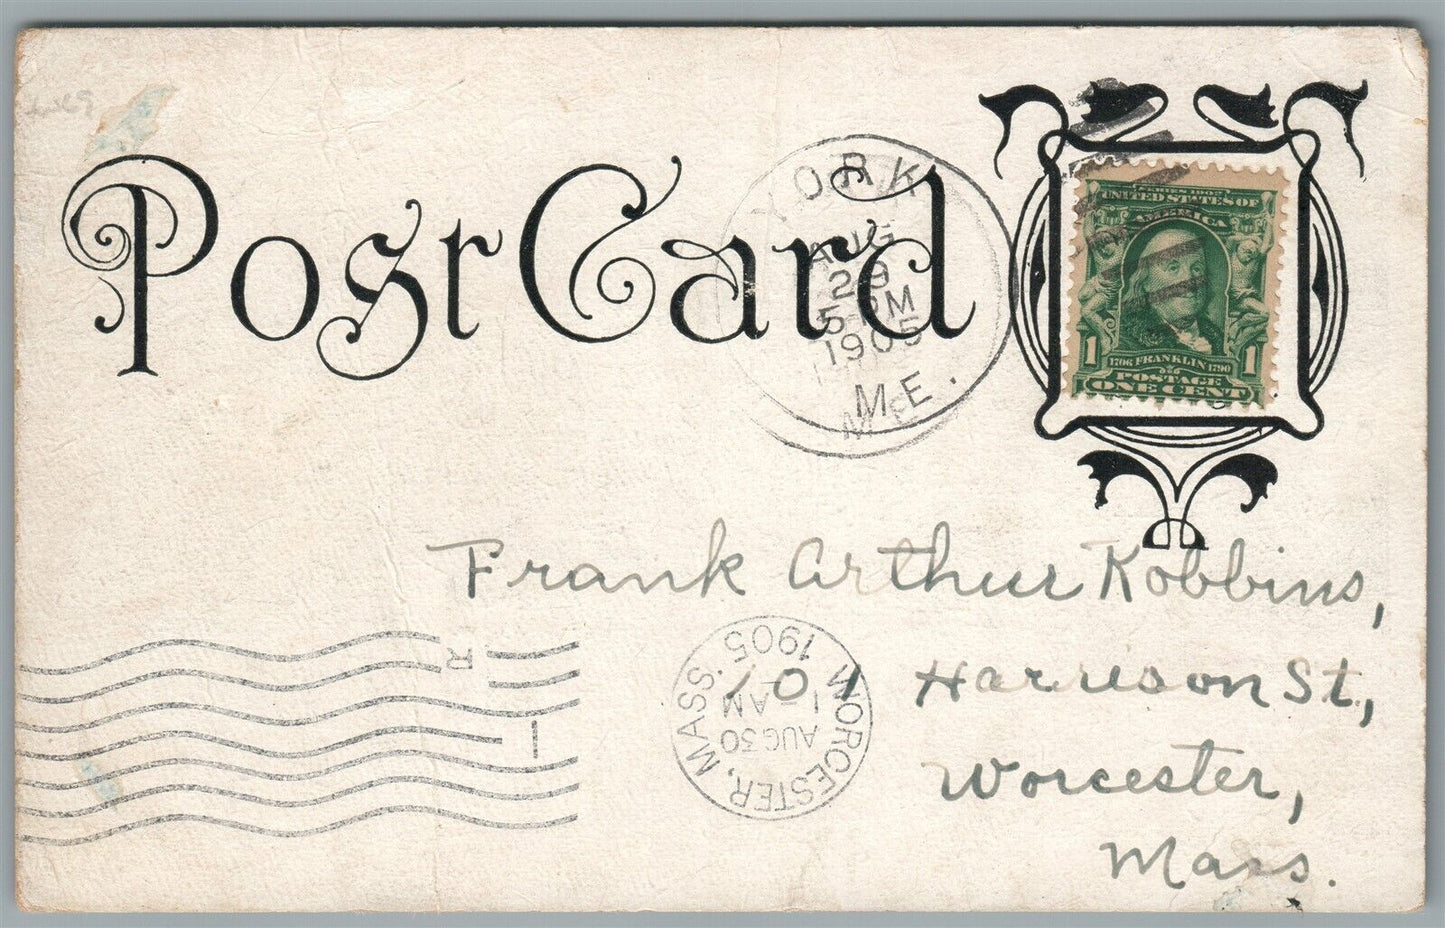 Post Card
YORK
AUG
29
5-PM
1905
ME.
SERIES 1902
UNITED STATES OF
AMERICA
1 1706 FRANKLIN 1790 1
POSTAGE
ONE CENT
Frank Arthur Robbins,
101 Harrison St.,
Worcester,
Mass.
WORCESTER, MASS.
AUG 30
1 AM
1905
R
1